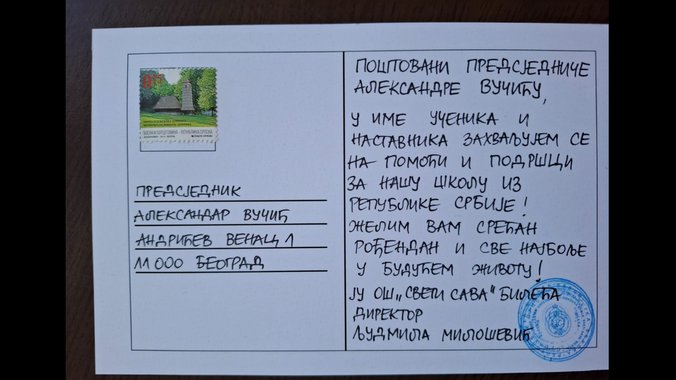 ПРЕДСЈЕДНИК
АЛЕКСАНДАР ВУЧИЋ
АНДРИЋЕВ ВЕНАЦ 1
11 000 БЕОГРАД
ПОШТОВАНИ ПРЕДСЈЕДНИЧЕ
АЛЕКСАНДРЕ ВУЧИЋУ,
У ИМЕ УЧЕНИКА И
НАСТАВНИКА ЗАХВАЉУЈЕМ СЕ
НА ПОМОЋИ И ПОДРШЦИ
ЗА НАШУ ШКОЛУ ИЗ
РЕПУБЛИКЕ СРБИЈЕ!
ЖЕЛИМ ВАМ СРЕЋАН
РОЂЕНДАН И СВЕ НАЈБОЉЕ
У БУДУЋЕМ ЖИВОТУ!
ЈУ ОШ „СВЕТИ САВА" БИЛЕЋА
ДИРЕКТОР
ЉУДМИЛА МИЛОШЕВИЋ